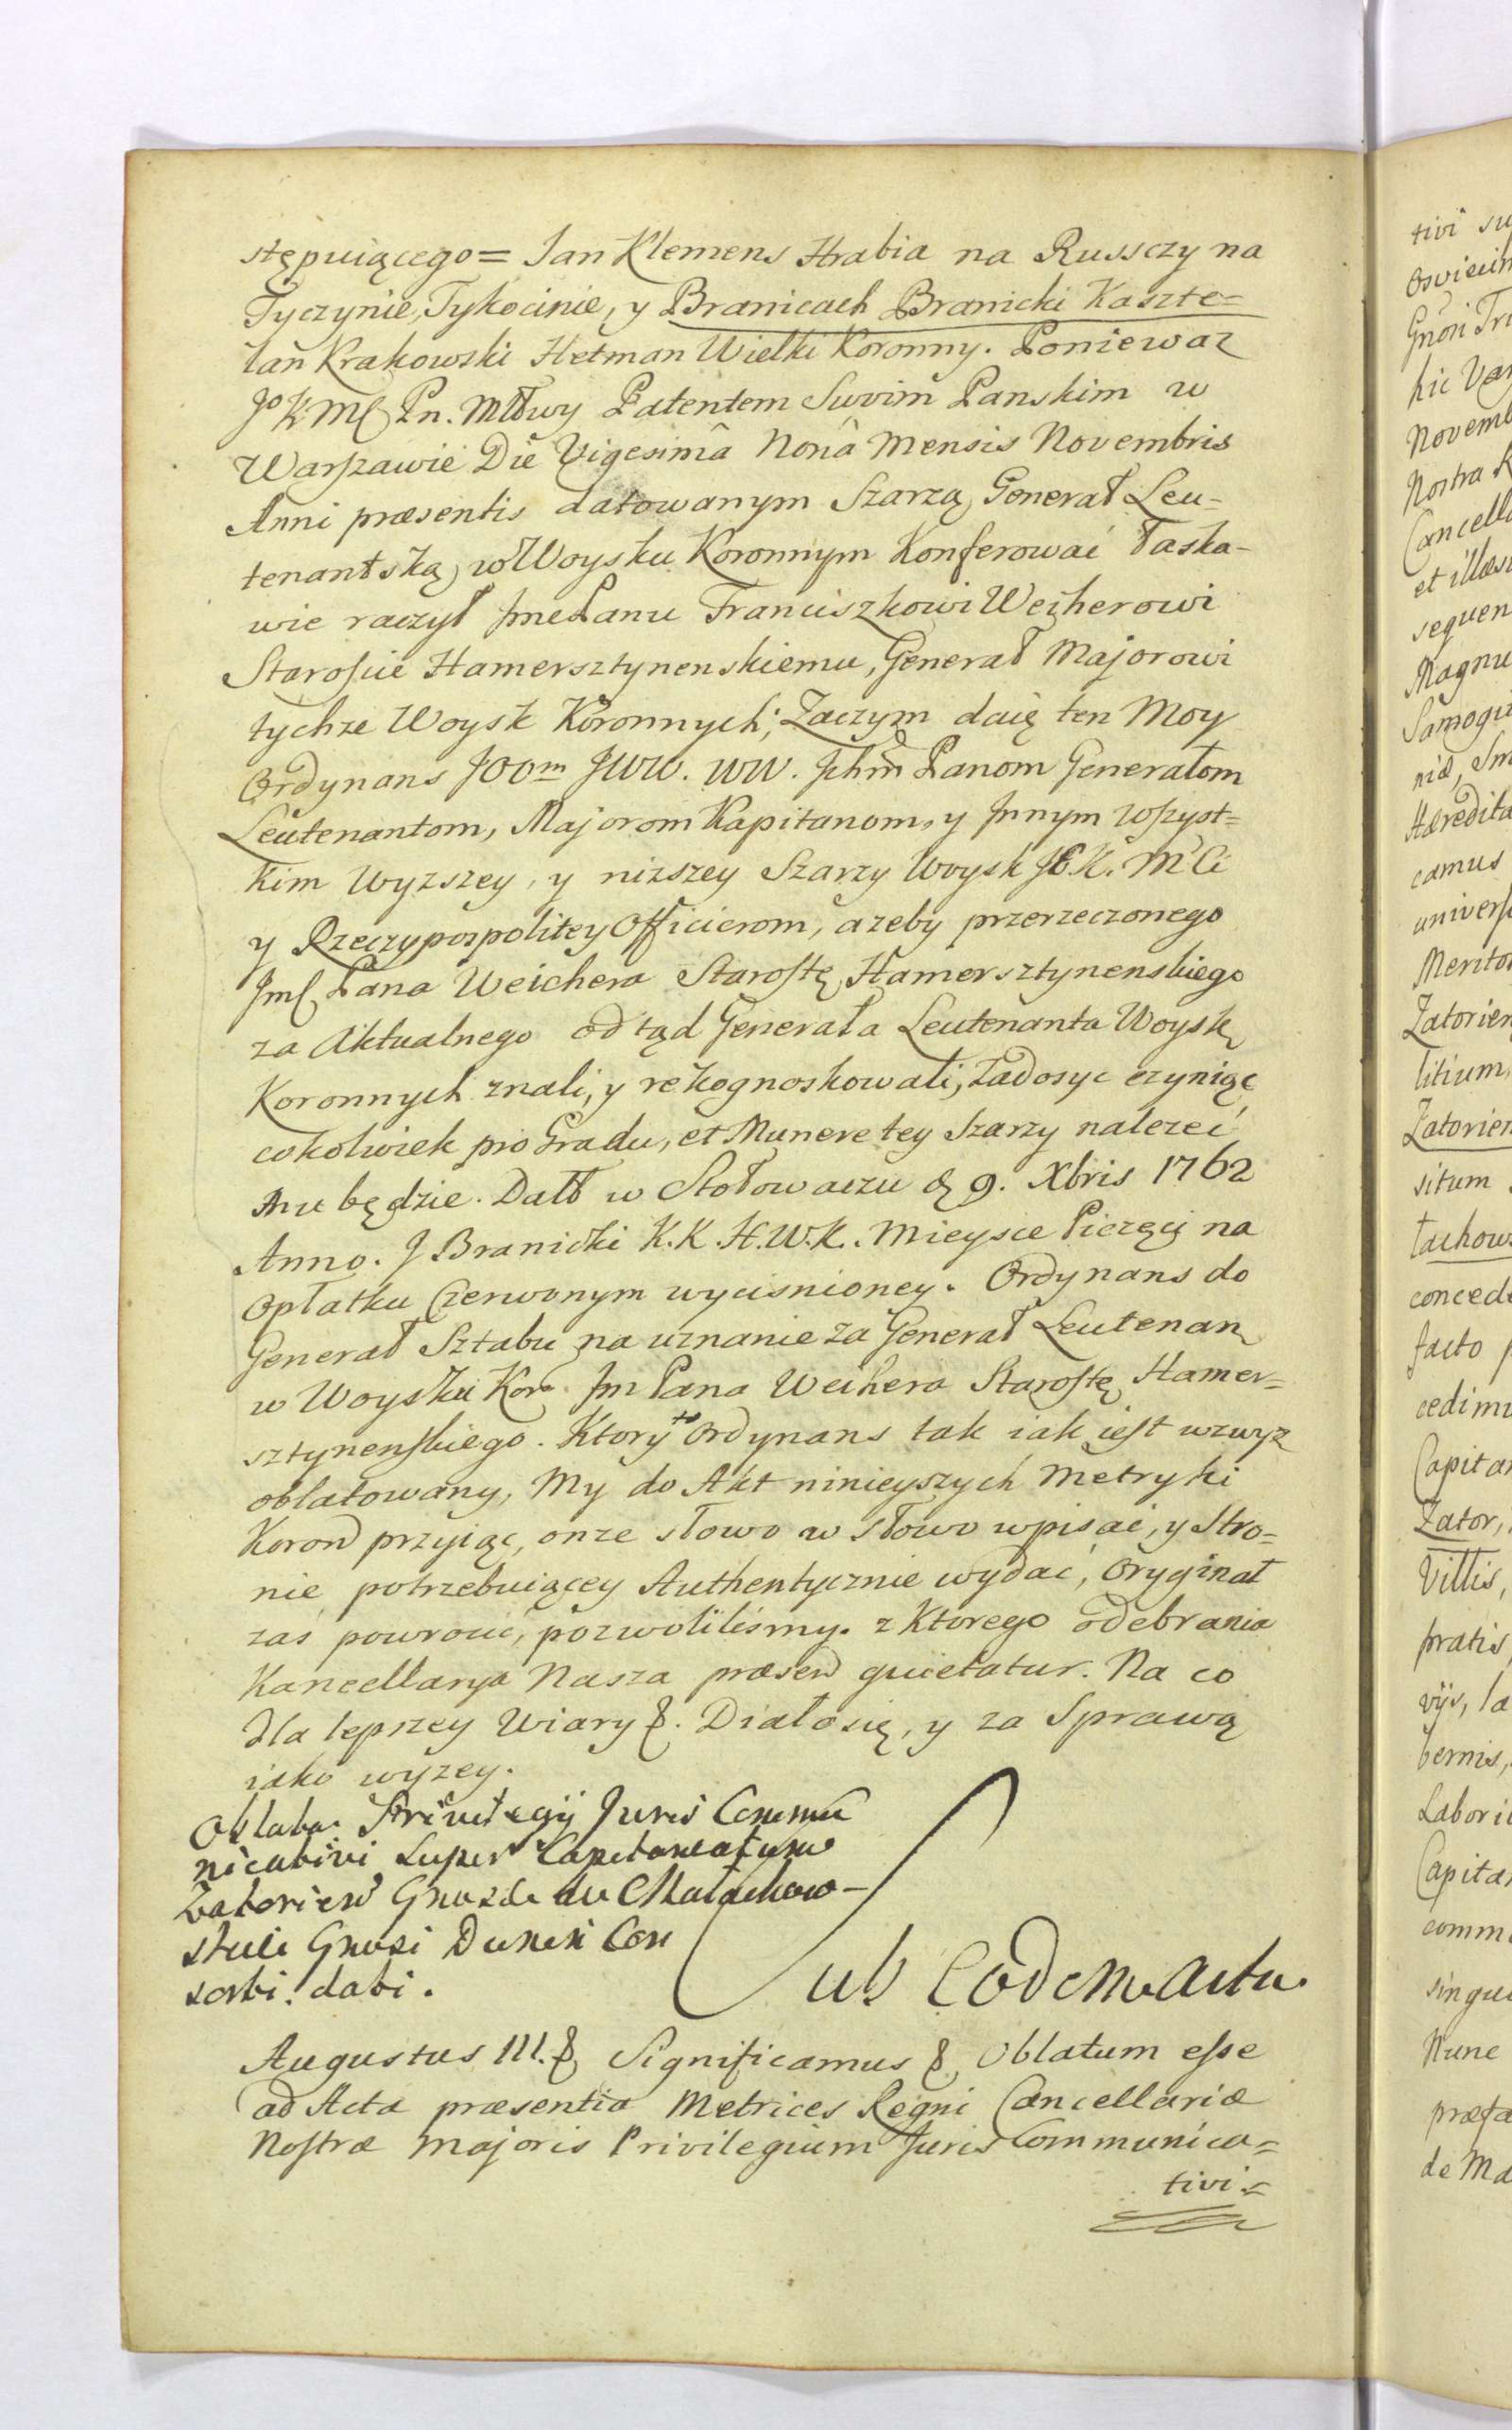 stępuiącego = Jan Klemens Hrabia na Russczy na
Tyczynie, Tykocinie, y Branicach Branicki Kaszte=
lan Krakowski Hetman Wielki Koronny. Poniewaz
Jo K Mć Pn. Młwy Patentem Swoim Panskim w
Warszawie Die Vigesimâ Nonâ Mensis Novembris
Anni præsentis datowanym Szarzą Generał Leu-
tenantską, w Woysku Koronnym Konferować łaska-
wie raczył Jme Panu Franciszkowi Weiherowi
Staroscie Hamersztynenskiemu, Generał Majorowi
tychze Woysk Koronnych; Zaczym daię ten Moy
Ordynans JOOm JWW. WW. Jchm Panom Generałom
Leutenantom, Majorom Kapitanom, y Jnnym wszyst=
kim Wyzszey, y nizszey Szarzy Woysk JK. Mci
y Rzeczypospolitey Officierom, azeby przerzeczonego
Jmć Pana Weichera Starostę Hamersztynenskiego
za Aktualnego odtąd Generała Leutenanta Woysk
Koronnych znali, y rekognoskowali, Zadosyc czyniąc
cokolwiek pro Gradu, et Munere tey Szarzy nalezeć
mu będzie. Datt w Stołowaczu d 9. Xbris 1762
Anno. J Branicki K.K.H.W.K. Mieysce Pieczęci na
Opłatku Czerwonym wycisnioney. Ordynans do
Generał Sztabu na uznanie za Generał Leutenan
w Woysku Kor. Jm Pana Weihera Starostę Hamer=
sztynenskiego. Ktory to Ordynans tak iak iest wzwyz
oblatowany, My do Akt ninieyszych Metryki
Koron przyiąc, onze słowo w słowo wpisać, y Stro=
nie potrzebuiącey Authentycznie wydać, Oryginał
zas powrocic, pozwolilismy. z Ktorego odebrania
Kancellarya Nasza præsen quietatur. Na co
dla lepszey Wiary &. Działo się, y za Sprawą
iako wyzey.
Oblata Privilegij Juris Commu
nicativi Super Capitaneatum
Zatorien Gnosæ de Małachow-
skie Gnosi Dunin Con
sorti dati.
Sub Eodem Actu.
Augustus III. & Significamus & Oblatum esse
ad Acta præsentia Metrices Regni Cancellariæ
Nostræ Majoris Privilegium Juris Communica=
tivi =
tivi su
Oswiecim
Gnosi Tri
hic Var
Novemb
Nostra R
Cancella
et illæs
sequen
Magnu
Samogit
niæ, Sm
Hæredita
camus
universi
Merito
Zatorien
litium,
Zatorien
situm
łachow
conced
facto p
cedimu
Capitan
Zator,
Villis,
pratis,
vijs, la
bernis,
Labori
Capitan
commu
singu
Nunc
præfa
de Ma